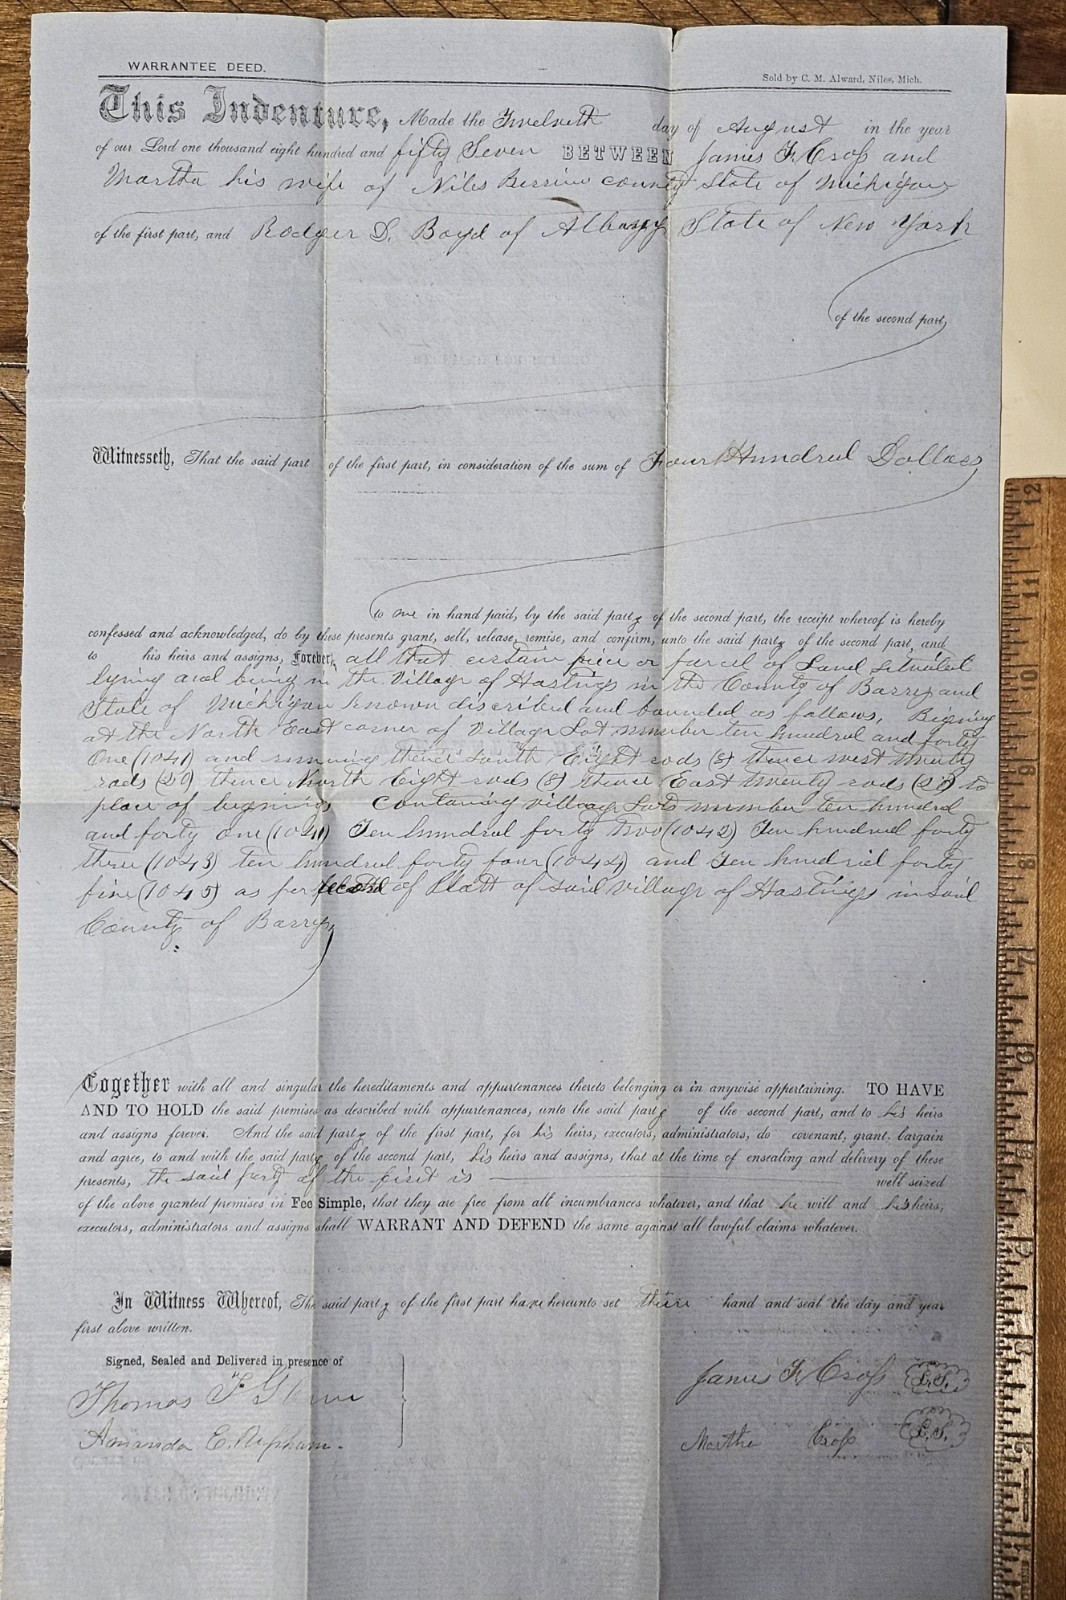 WARRANTEE DEED.
Sold by C. M. Alward, Niles, Mich.
This Indenture, Made the Twelveth day of August in the year
of our Lord one thousand eight hundred and fifty Seven BETWEEN James F. Cross and
Martha his wife of Niles Berrien county State of Michigan
of the first part, and Rodger S. Boyd of Albany State of New York
of the second part,
Witnesseth, That the said part of the first part, in consideration of the sum of Four Hundred Dollars,
to me in hand paid, by the said party of the second part, the receipt whereof is hereby
confessed and acknowledged, do by these presents grant, sell, release, remise, and confirm, unto the said party of the second part, and
to his heirs and assigns, Forever, all that certain piece or parcel of Land situated
lying and being in the Village of Hastings in the County of Barry and
State of Michigan known discribed and bounded as follows, Bigning
at the North East corner of Village Lot number ten hundred and forty
One (1041) and running thence South Eight rods (8) thence west twenty
rods (20) thence North Eight rods (8) thence East twenty rods (20) to
place of begining containing village Lots number ten hundred
and forty one (1041) Ten hundred forty two (1042) Ten hundred forty
three (1043) ten hundred forty four (1044) and Ten hundred forty
five (1045) as per of Platt of said village of Hastings in said
County of Barry,
Together with all and singular the hereditaments and appurtenances thereto belonging or in anywise appertaining. TO HAVE
AND TO HOLD the said premises as described with appurtenances, unto the said party of the second part, and to his heirs
and assigns forever. And the said party of the first part, for his heirs, executors, administrators, do covenant, grant, bargain
and agree, to and with the said party of the second part, his heirs and assigns, that at the time of ensealing and delivery of these
presents, the said party of the first is well seized
of the above granted premises in Fee Simple, that they are free from all incumbrances whatever, and that he will and his heirs,
executors, administrators and assigns shall WARRANT AND DEFEND the same against all lawful claims whatever.
In Witness Whereof, The said party of the first part have hereunto set their hand and seal the day and year
first above written.
Signed, Sealed and Delivered in presence of
James F. Cross L.S.
Thomas F.
Martha Cross L.S.
Amanda C.
12
11
10
9
8
7